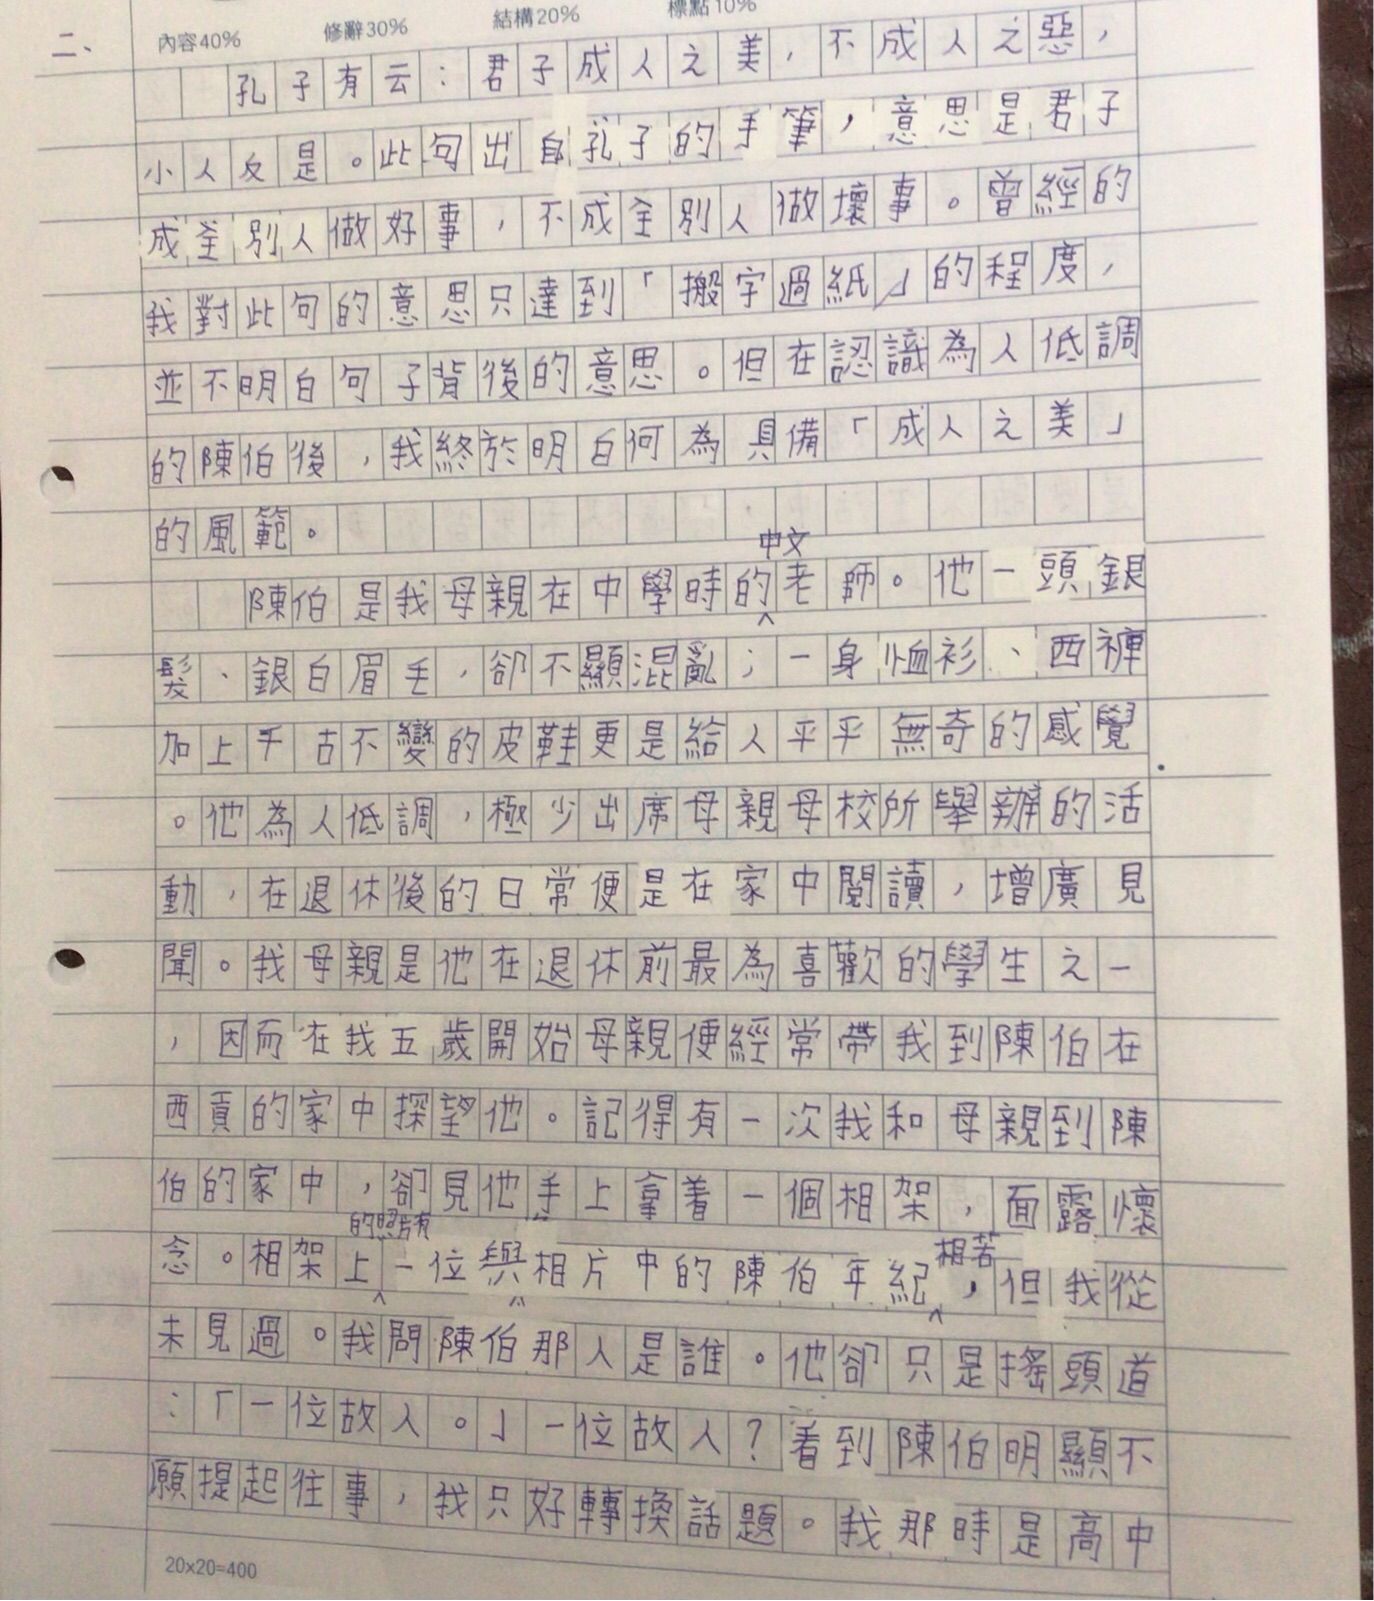 二、
內容40% 修辭30% 結構20% 標點10%
孔子有云：君子成人之美，不成人之惡，
小人反是。此句出自孔子的手筆，意思是君子
成全別人做好事，不成全別人做壞事。曾經的
我對此句的意思只達到「搬字過紙」的程度，
並不明白句子背後的意思。但在認識為人低調
的陳伯後，我終於明白何為具備「成人之美」
的風範。
陳伯是我母親在中學時的中文老師。他一頭銀
髮、銀白眉毛，卻不顯混亂；一身恤衫、西褲
加上千古不變的皮鞋更是給人平平無奇的感覺
。他為人低調，極少出席母親母校所舉辦的活
動，在退休後的日常便是在家中閱讀，增廣見
聞。我母親是他在退休前最為喜歡的學生之一
，因而在我五歲開始母親便經常帶我到陳伯在
西貢的家中探望他。記得有一次我和母親到陳
伯的家中，卻見他手上拿着一個相架，面露懷
念。相架上的照片有一位與相片中的陳伯年紀相若，但我從
未見過。我問陳伯那人是誰。他卻只是搖頭道
：「一位故人。」一位故人？看到陳伯明顯不
願提起往事，我只好轉換話題。我那時是高中
20x20=400